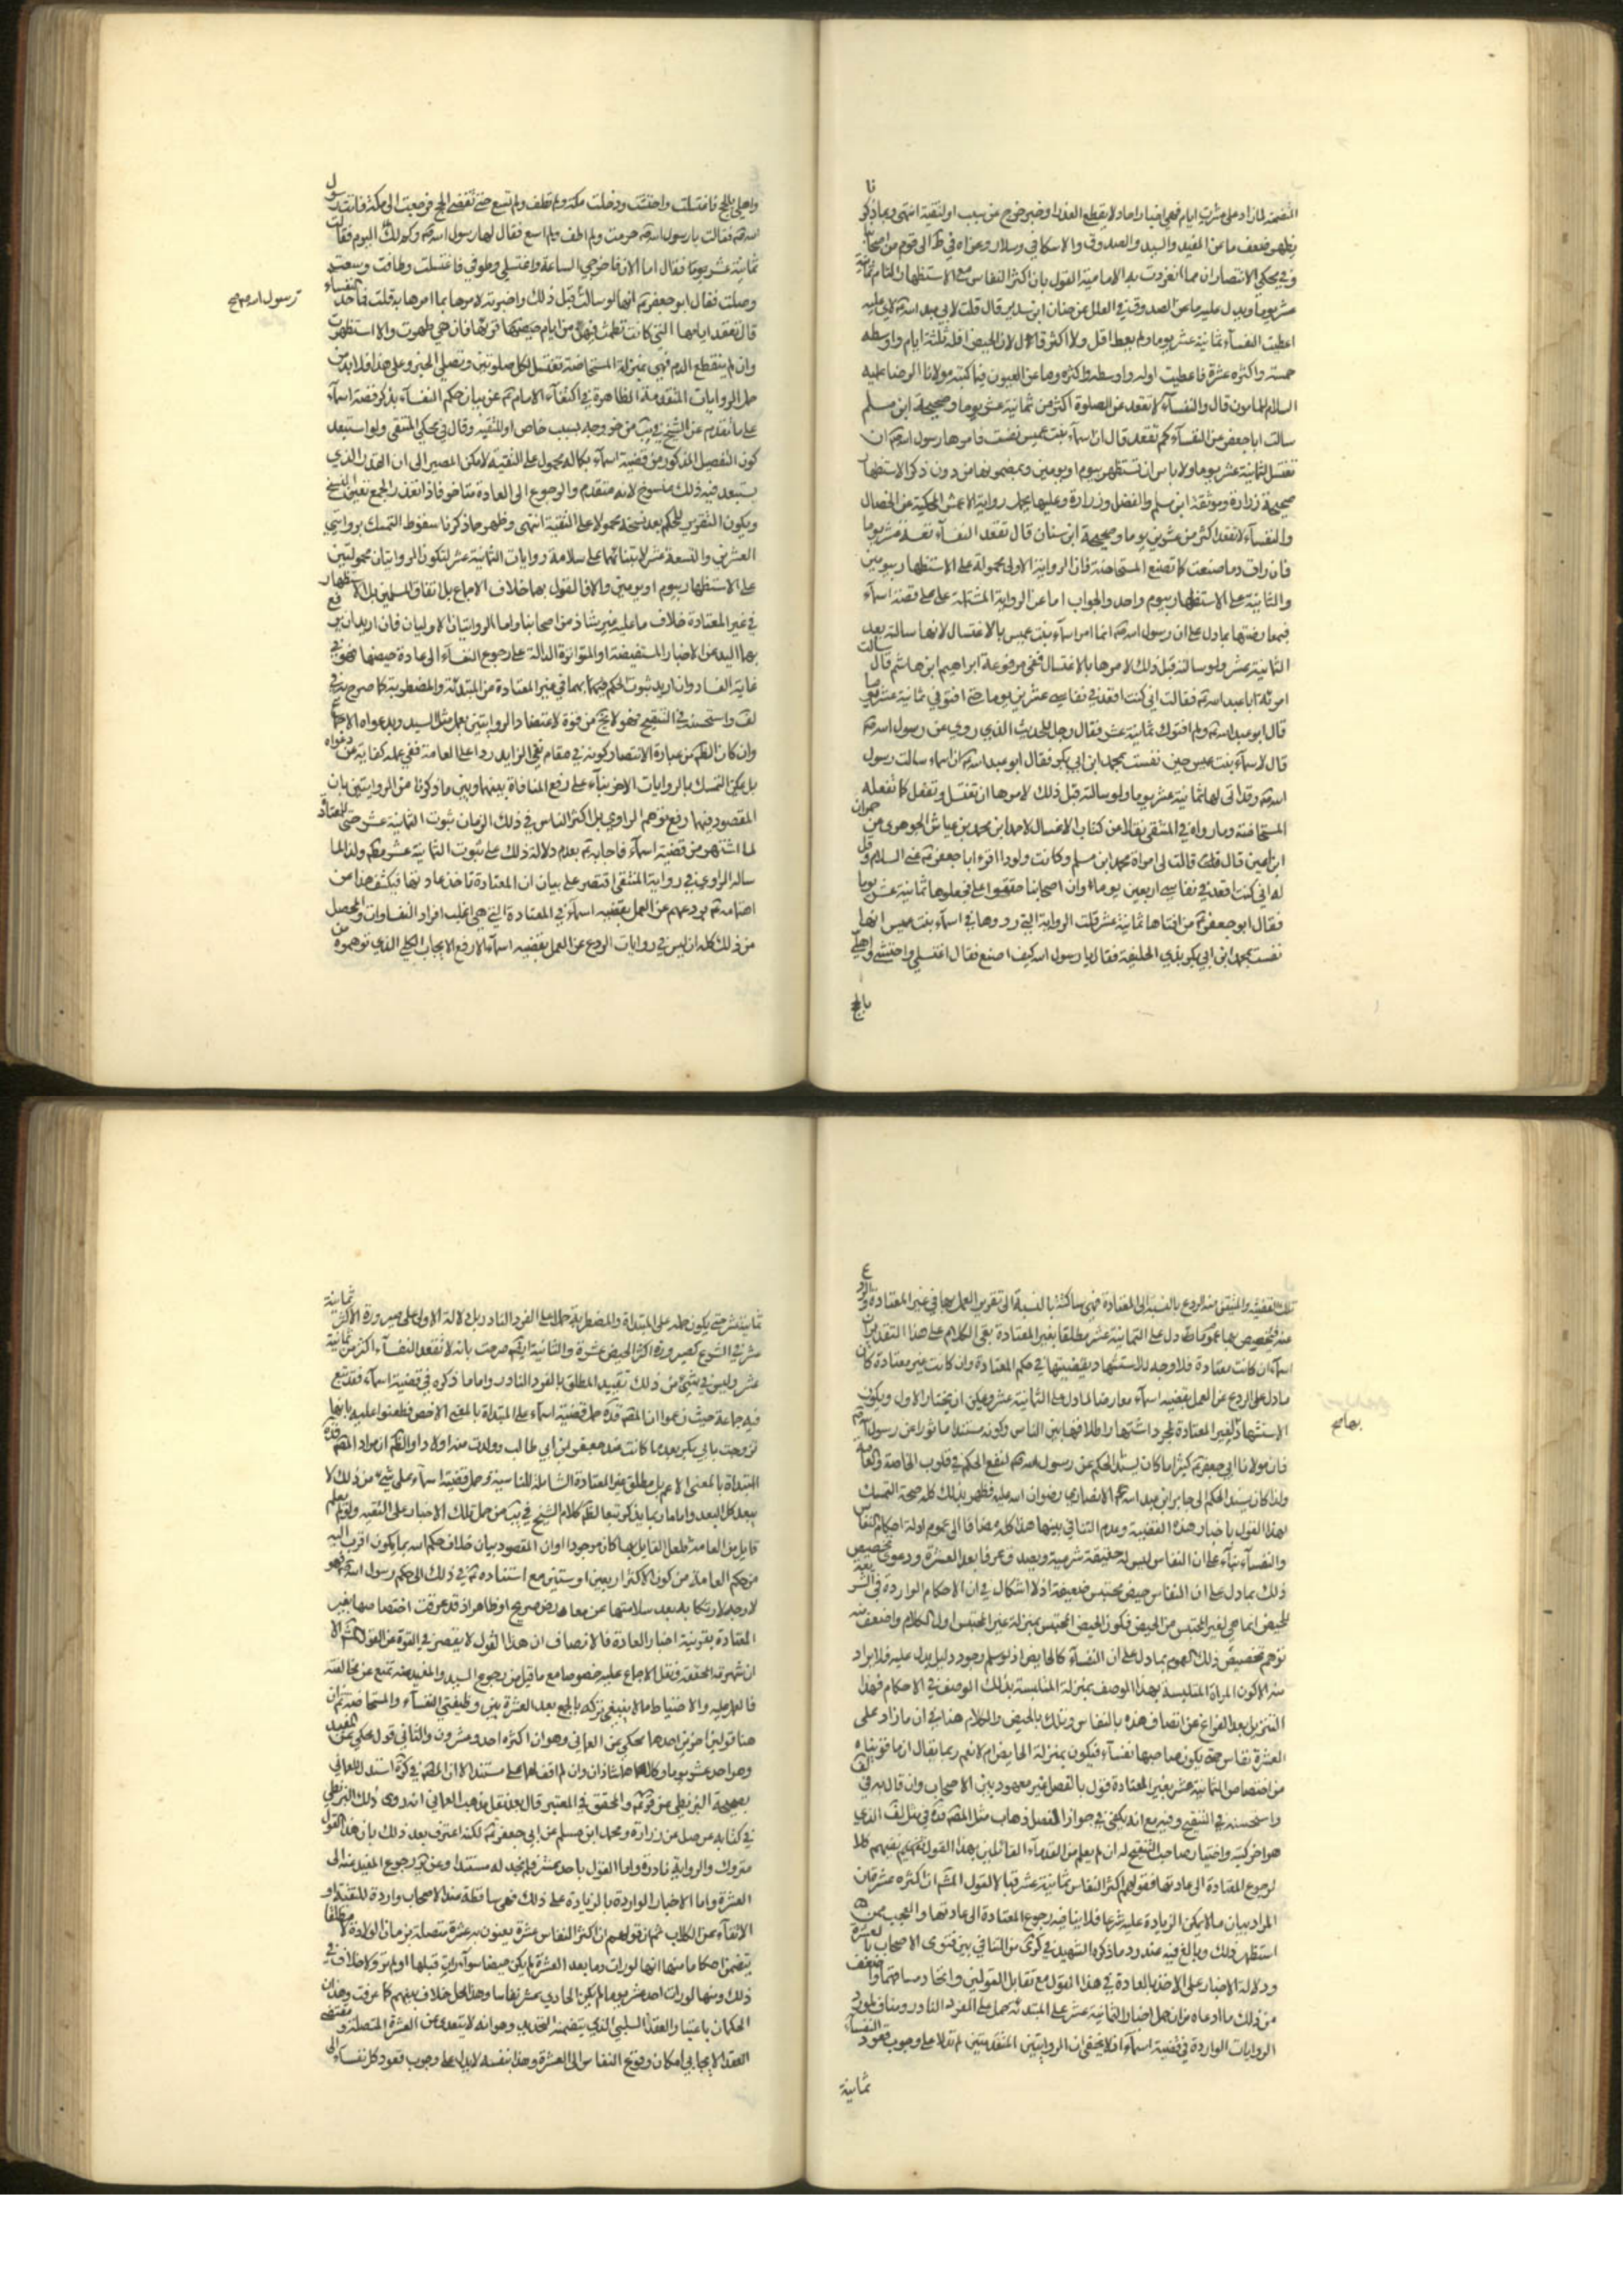 المتضمنة لما زاد على عشرة ايام فهي اخبار احاد لا يقطع العذر او خبر خرج عن سبب او لتقية انتهى وبما ذكرنا
يظهر ضعف ما عن المفيد والسيد والصدوق والاسكافي وسلار وعزاه في كره الى قوم من اصحابنا
وفي محكي الانتصار ان مما انفردت به الامامية القول بان اكثر النفاس مع الاستظهار التام ثمانية
عشر يوما ويدل عليه ما عن الصدوق في العلل عن حنان ابن سدير قال قلت لابي عبد الله لاي علة
اعطيت النفسآء ثمانية عشر يوما ولم يعط اقل ولا اكثر قال لان الحيض اقله ثلثة ايام واوسطه
خمسة واكثره عشرة فاعطيت اوله واوسطه واكثره وما عن العيون فيما كتبه مولانا الرضا عليه
السلام للمامون قال والنفسآء لا تقعد عن الصلوة اكثر من ثمانية عشر يوما وصحيحة ابن مسلم
سالت ابا جعفر عن النفسآء كم تقعد قال ان اسمآء بنت عميس نفست فامرها رسول الله ان
تغتسل لثمانية عشر يوما ولا باس ان تستظهر بيوم او يومين وبمضمونها من دون ذكر الاستظهار
صحيحة زرارة وموثقة ابن مسلم والفضل وزرارة وعليها يحمل رواية الاعمش المحكية عن الخصال
والنفسآء لا تقعد اكثر من عشرين يوما وصحيحة ابن سنان قال تقعد النفسآء تسعة عشر يوما
فان رات دما صنعت كما تصنع المستحاضة فان الرواية الاولى محمولة على الاستظهار بيومين
والثانية على الاستظهار بيوم واحد والجواب اما عن الرواية المشتملة على قصة اسمآء
فبمعارضتها بما دل على ان رسول الله انما امر اسمآء بنت عميس بالاغتسال لانها سالته بعد
الثمانية عشر ولو سالته قبل ذلك لامرها بالاغتسال ففي مرفوعة ابراهيم ابن هاشم قال سالت
امرئة ابا عبد الله فقالت اني كنت اقعد في نفاسي عشرين يوما حتى افتوني ثمانية عشر يوما
قال ابو عبد الله ولم افتوك ثمانية عشر فقال رجل للحديث الذي روي عن رسول الله
قال لاسمآء بنت عميس حين نفست بمحمد ابن ابي بكر فقال ابو عبد الله ان اسماء سالت رسول
الله وقد اتى لها ثمانية عشر يوما ولو سالته قبل ذلك لامرها ان تغتسل وتفعل كما تفعله
المستحاضة وما رواه في المنتقى نقلا عن كتاب الاغسال لاحمد ابن محمد بن عياش الجوهري عن حمران
ابن اعين قال قالت لي امراة محمد ابن مسلم وكانت ولودا اقرء ابا جعفر عني السلام وقل
له اني كنت اقعد في نفاسي اربعين يوما وان اصحابنا ضيقوا علي فجعلوها ثمانية عشر يوما
فقال ابو جعفر من افتاها ثمانية عشر قلت الرواية التي رووها في اسمآء بنت عميس انها
نفست بمحمد ابن ابي بكر بذي الحليفة فقالت يا رسول الله كيف اصنع فقال اغتسلي واحتشي واهلي
بالحج
واهلي بالحج فاغتسلت واحتشت ودخلت مكة ولم تطف ولم تسع حتى تقضى الحج فرجعت الى مكة فاتت رسول
الله فقالت يا رسول الله احرمت ولم اطف ولم اسع فقال لها رسول الله وكم لك اليوم فقالت
ثمانية عشر يوما فقال اما الان فاخرجي الساعة واغتسلي وطوفي فاغتسلت وطافت وسعت
رسول الله صح
وحلت فقال ابو جعفر انها لو سالت قبل ذلك واخبرته لامرها بما امرها به قلت فما حد النفساء
قال تقعد ايامها التي كانت تطمث فيهن من ايام حيضها فان هي طهرت والا استظهرت
وان لم ينقطع الدم فهي بمنزلة المستحاضة تغتسل لكل صلوتين وتصلي الخبر وعلى هذا فلا بد من
حمل الروايات المتقدمة الظاهرة في اكتفآء الامام عن بيان حكم النفسآء بذكر قصة اسمآء
على ما تقدم عن الشيخ في يب من خروجه لسبب خاص او للتقية وقال في محكي المنتقى ولو استبعد
كون التفصيل المذكور من قضية اسمآء بكماله محمول على التقية لامكن المصير الى ان القدر الذي
يستبعد فيه ذلك منسوخ لانه متقدم والرجوع الى العادة متاخر فاذا تعذر الجمع تعين النسخ
ويكون التقرير للحكم بعد نسخه محمولا على التقية انتهى وظهر مما ذكرنا سقوط التمسك بروايتي
العشرين والتسعة عشر لابتنائها على سلامة روايات الثمانية عشر لتكون الروايتان محمولتين
على الاستظهار بيوم او يومين والا فالقول بهما خلاف الاجماع بل اتفاق المسلمين بل الاستظهار
في غير المعتادة خلاف ما عليه غير شاذ من اصحابنا واما الروايتان الاوليان فان اريد ان يرفع
بهما اليد عن الاخبار المستفيضة او المتواترة الدالة على رجوع النفسآء الى عادة حيضها فهو في
غاية الفساد وان اريد ثبوت الحكم بهما في غير المعتادة من المبتدئة والمضطربة كما صرح به في
لف واستحسنه في التنقيح فهو لا يخ من قوة لاعتضاد الروايتين بعمل مثل السيد وبدعواه الاجماع
وان كان الظ من عبارة الانتصار كونه في مقام نفي الزايد ردا على العامة ففي عمله كفاية عن دعواه
بل يمكن التمسك بالروايات الاخر بنآء على رفع المنافاة بينها وبين ما ذكرنا من الروايتين بان
المقصود فيهما رفع توهم الراوي بل اكثر الناس في ذلك الزمان ثبوت الثمانية عشر حتى للمعتادة
لما اشتهر من قضية اسمآء فاجابه بعدم دلالة ذلك على ثبوت الثمانية عشر مط ولذا لما
ساله الراوي في رواية المنتقى اقتصر على بيان ان المعتادة تاخذ عادتها فيكشف هذا من
اهتمامه بردعهم عن العمل بقضية اسمآء في المعتادة التي هي اغلب افراد النفساوات والحاصل
من ذلك كله ان ليس في روايات الردع عن العمل بقضية اسمآء الا رفع الايجاب الكلي الذي توهموه من
تلك القضية والمتيقن منه الردع بالنسبة الى المعتادة فهي ساكتة بالنسبة الى تقرير العمل بها في غير المعتادة والردع
عنه فتخصيص بها عموم ما دل على الثمانية عشر مطلقا بغير المعتادة بقي الكلام على هذا التقدير ان
اسمآء ان كانت معتادة فلا وجه للاستشهاد بقضيتها في حكم المعتادة وان كانت غير معتادة كان
ما دل على الردع عن العمل بقضية اسمآء معارضا لما دل على الثمانية عشر ويمكن ان يختار الاول ويكون
الاستشهاد لغير المعتادة لمجرد اشتهار اطلاقها بين الناس وكونه مستندا ماثورا عن رسول الله
بها صح
فان مولانا ابي جعفر كثيرا ما كان يسند الحكم عن رسول الله لنفع الحكم في قلوب الخاصة والعامة
ولذا كان يسند الحكم الى جابر ابن عبد الله الانصاري رضوان الله عليه فظهر بذلك كله صحة التمسك
لهذا القول باخبار هذه القضية وعدم التنافي بينها هذا كله مضافا الى عموم ادلة احكام النفاس
والنفسآء بنآء على ان النفاس ليس له حقيقة شرعية ويصدق عرفا بعد العشرة ودعوى تخصيص
ذلك بما دل على ان النفاس حيض محتبس ضعيفة اذ لا اشكال في ان الاحكام الواردة في الشريعة
للحيض انما هي لغير المحتبس من الحيض فكون الحيض المحتبس بمنزلة غير المحتبس اول الكلام واضعف منه
توهم تخصيص ذلك العموم بما دل على ان النفسآء كالحايض اذ لو سلم وجود دليل يدل عليه فلا يراد
منه الا كون المراة المتلبسة بهذا الوصف بمنزلة المتلبسة بذلك الوصف في الاحكام فهذا
التنزيل بعد الفراغ عن اتصاف هذه بالنفاس وتلك بالحيض والكلام هنا في ان ما زاد على
العشرة نفاس حتى يكون صاحبها نفسآء فيكون بمنزلة الحايض ام لا نعم ربما يقال ان ما قويناه
من اختصاص الثمانية عشر بغير المعتادة قول بالفصل غير معهود بين الاصحاب وان قال به في لف
واستحسنه في التنقيح وفيه مع انه يكفي في جواز الفصل ذهاب مثل المص قده في مثل لف الذي
هو اخر كتبه واختيار صاحب التنقيح له ان لم يعلم من القدمآء القائلين بهذا القول نفيهم كلا
لرجوع المعتادة الى عادتها فقولهم اكثر النفاس ثمانية عشر قبالا لقول المش ان اكثره عشر فان
المراد بيان ما لا يمكن الزيادة عليه شرعا فلا ينافيه رجوع المعتادة الى عادتها والعجب ممن
استظهر ذلك وبالغ فيه عند رد ما ذكره الشهيد في كرى من التنافي بين فتوى الاصحاب بالعشرة
ودلالة الاخبار على الاخذ بالعادة في هذا القول مع تقابل القولين واتحاد مساقهما واضعف
من ذلك ما ادعاه من ان حمل اخبار الثمانية عشر على المبتدئة حمل على الفرد النادر ومناف لمورد
الروايات الواردة في قضية اسمآء اذ لا يخفى ان الروايتين المتقدمتين لم تدلا على وجوب قعود النفسآء
ثمانية
ثمانية عشر حتى يكون حمله على المبتداة والمضطربة حملا على الفرد النادر بل دلالة الاولى على صيرورة الاكثر ثمانية
عشر في الشرع كصيرورة اكثر الحيض عشرة والثانية ايضا صرحت بانه لا تقعد النفسآء اكثر من ثمانية
عشر وليس في شئ من ذلك تقييد المطلق بالفرد النادر واما ما ذكره في قضية اسمآء فقد تبع
فيه جماعة حيث زعموا ان المص قده حمل قضية اسمآء على المبتداة بالمعنى الاخص فطعنوا عليه بانها
تزوجت بابي بكر بعد ما كانت عند جعفر بن ابي طالب وولدت منه اولادا والظ ان مراد المص قده
المبتداة بالمعنى الاعم بل مطلق غير المعتادة الشاملة للناسية وحمل قضية اسمآء على شئ من ذلك لا
يبعد كل البعد واما ما ربما يذكر تبعا لظ كلام الشيخ في يب من حمل تلك الاخبار على التقية ولو لم يعلم
قايل من العامة فلعل القايل بها كان موجودا او ان المقصود بيان خلاف حكم الله بما يكون اقرب اليه
من حكم العامة من كون الاكثر اربعين او ستين مع استناده في ذلك الى حكم رسول الله فهو
لا وجه لارتكابه بعد سلامتها عن معارض صريح او ظاهر اذ قد عرفت اختصاصها بغير
المعتادة بقرينة اخبار العادة فالانصاف ان هذا القول لا يقصر في القوة عن القول المش الا
ان شهرته المحققة ونقل الاجماع عليه خصوصا مع ما قيل من رجوع السيد والمفيد عنه تمنع عن مخالفته
فالعمل عليه والاحتياط مما لا ينبغي تركه بالجمع بعد العشرة بين وظيفتي النفسآء والمستحاضة ثم ان
هنا قولين اخرين احدهما محكي عن العماني وهو ان اكثره احد وعشرون والثاني قول محكي عن المفيد
وهو احد عشر يوما وكلاهما شاذان وان لم اقف لهما على مستند الا ان المص في كره استدل للعماني
بصحيحة البزنطي عن والمحقق في المعتبر قال بعد نقل مذهب العماني انه روى ذلك البزنطي
في كتابه عن جميل عن زرارة ومحمد ابن مسلم عن ابي جعفر لكنه اعترف بعد ذلك بان هذا القول
متروك والرواية نادرة واما القول باحد عشر فلم نجد له مستندا وعن رجوع المفيد عنه الى
العشرة واما الاخبار الواردة بالزيادة على ذلك فهي ساقطة عند الاصحاب واردة للتقية او
الاتقآء عن الكلاب ثم ان قولهم ان اكثر النفاس عشرة يعنون به عشرة متصلة بزمان الولادة لا مطلقا
يتضمن احكاما منها انها لو رات دما بعد العشرة لم يكن حيضا سوآء رات قبلها او لم تر ولا خلاف في
ذلك ومنها لو رات احد عشر يوما لم يكن الحادي عشر نفاسا وهذا محل خلاف بينهم كما عرفت وهذان
الحكمان باعتبار العقد السلبي الذي يتضمنه التحديد وهو انه لا يتعدى عن العشرة المتصلة ومقتضى
العقد الايجابي امكان وقوع النفاس الى العشرة وهذا بنفسه لا يدل على وجوب قعود كل نفسآء الى